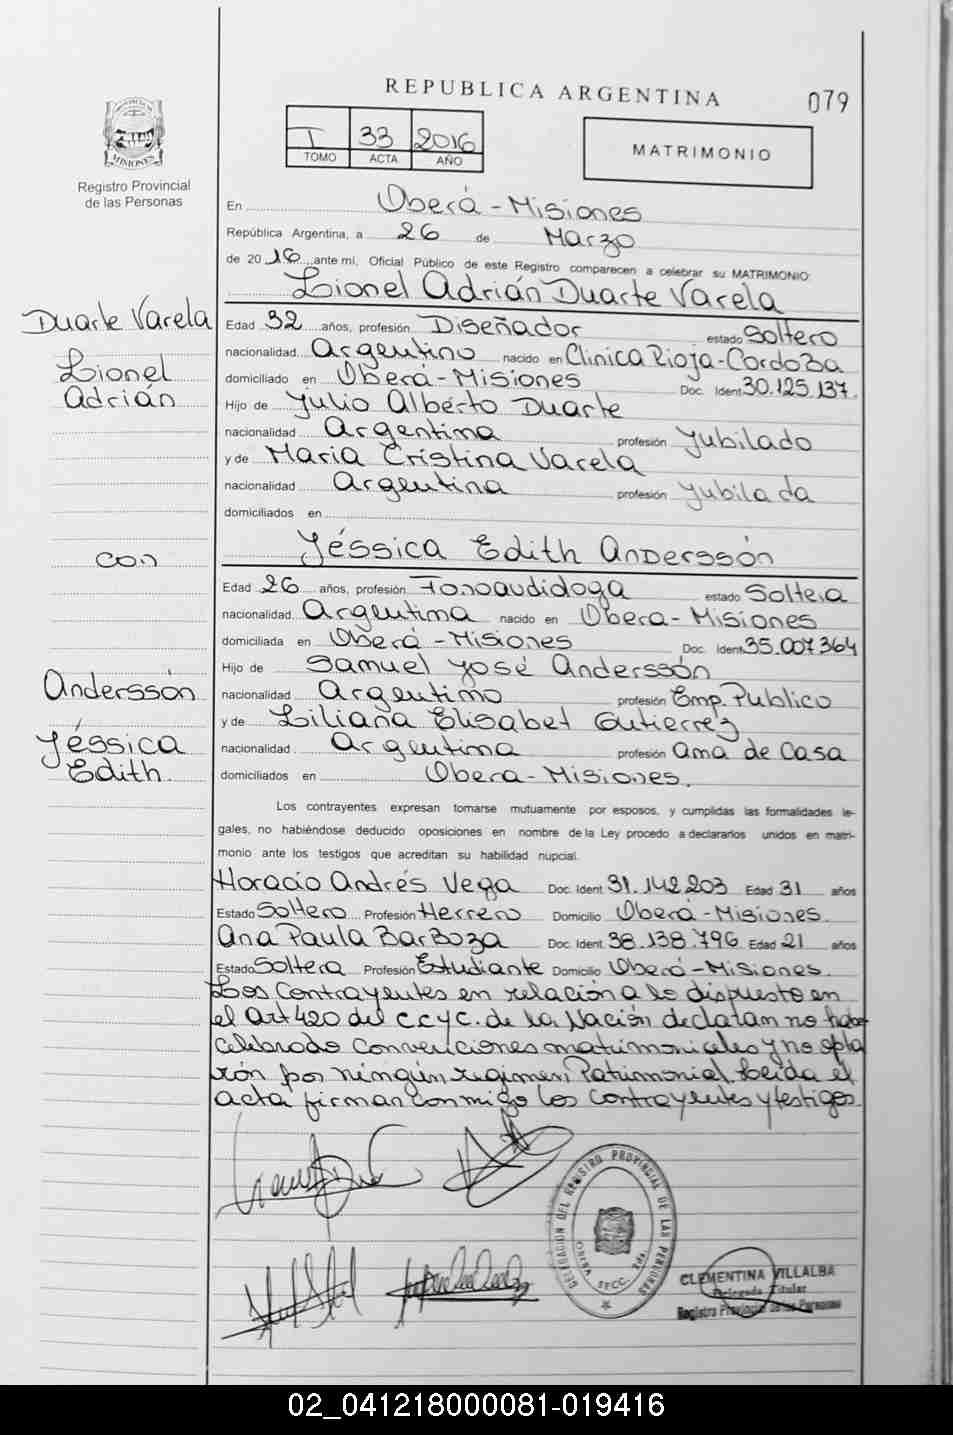 REPUBLICA ARGENTINA
079
I 33 2016
TOMO ACTA AÑO
MATRIMONIO
MISIONES
Registro Provincial
de las Personas
En Oberá - Misiones
República Argentina, a 26 de Marzo
de 2016 ante mi, Oficial Público de este Registro comparecen a celebrar su MATRIMONIO:
Lionel Adrián Duarte Varela
Duarte Varela
Lionel
Adrián
Edad 32 años, profesión Diseñador estado Soltero
nacionalidad Argentino nacido en Clinica Rioja-Cordoba
domiciliado en Oberá - Misiones Doc. Ident 30.125.137.
Hijo de Julio Alberto Duarte
nacionalidad Argentina profesión Jubilado
y de Maria Cristina Varela
nacionalidad Argentina profesión Jubilada
domiciliados en
con
Jéssica Edith Anderssón
Edad 26 años, profesión Fonoaudióloga estado Soltera
nacionalidad Argentina nacido en Obera - Misiones
domiciliada en Oberá - Misiones Doc. Ident 35.007.364
Hijo de Samuel José Anderssón
Anderssón
Jéssica
Edith.
nacionalidad Argentino profesión Emp. Publico
y de Liliana Elisabet Gutierrez
nacionalidad Argentina profesión Ama de Casa
domiciliados en Obera - Misiones.
Los contrayentes expresan tomarse mutuamente por esposos, y cumplidas las formalidades le-
gales, no habiéndose deducido oposiciones en nombre de la Ley procedo a declararlos unidos en matri-
monio ante los testigos que acreditan su habilidad nupcial.
Horacio Andrés Vega Doc. Ident 31.142.203 Edad 31 años
Estado Soltero Profesión Herrero Domicilio Oberá - Misiones.
Ana Paula Barboza Doc. Ident. 38.138.796 Edad 21 años
Estado Soltera Profesión Estudiante Domicilio Oberá - Misiones.
Los Contrayentes en relación a lo dispuesto en
el Art 420 del C.C y C. de la Nación declaran no haber
celebrado convenciones matrimoniales y no opta
rón por ningún regimen Patrimonial. Leida el
acta firman conmigo los contrayentes y testigos.
DELEGACION DEL REGISTRO PROVINCIAL DE LAS PERSONAS
CLEMENTINA VILLALBA
Delegada Titular
Registro Provincial de las Personas
02_041218000081-019416